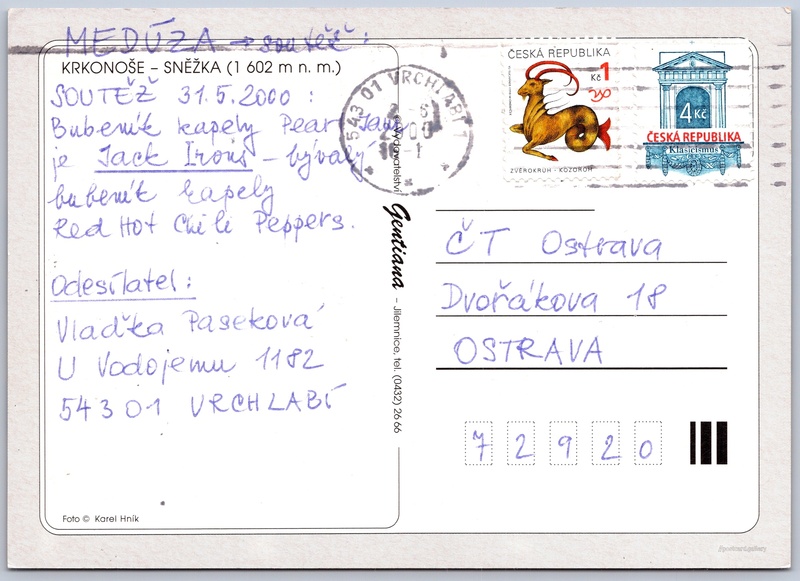 MEDÚZA → soutěž:
KRKONOŠE – SNĚŽKA (1 602 m n. m.)
SOUTĚŽ 31.5.2000:
Bubeník kapely Pearl Jam
je Jack Irons – bývalý
bubeník kapely
Red Hot Chili Peppers.
Odesílatel:
Vlaďka Paseková
U Vodojemu 1182
543 01 VRCHLABÍ
Foto © Karel Hník
Vydavatelství Gentiana – Jilemnice, tel. (0432) 26 66
543 01 VRCHLABÍ 1
ČESKÁ REPUBLIKA
Kč 1
ZVĚROKRUH - KOZOROH
4 Kč
ČESKÁ REPUBLIKA
Klasicismus
ČT Ostrava
Dvořákova 18
OSTRAVA
72920